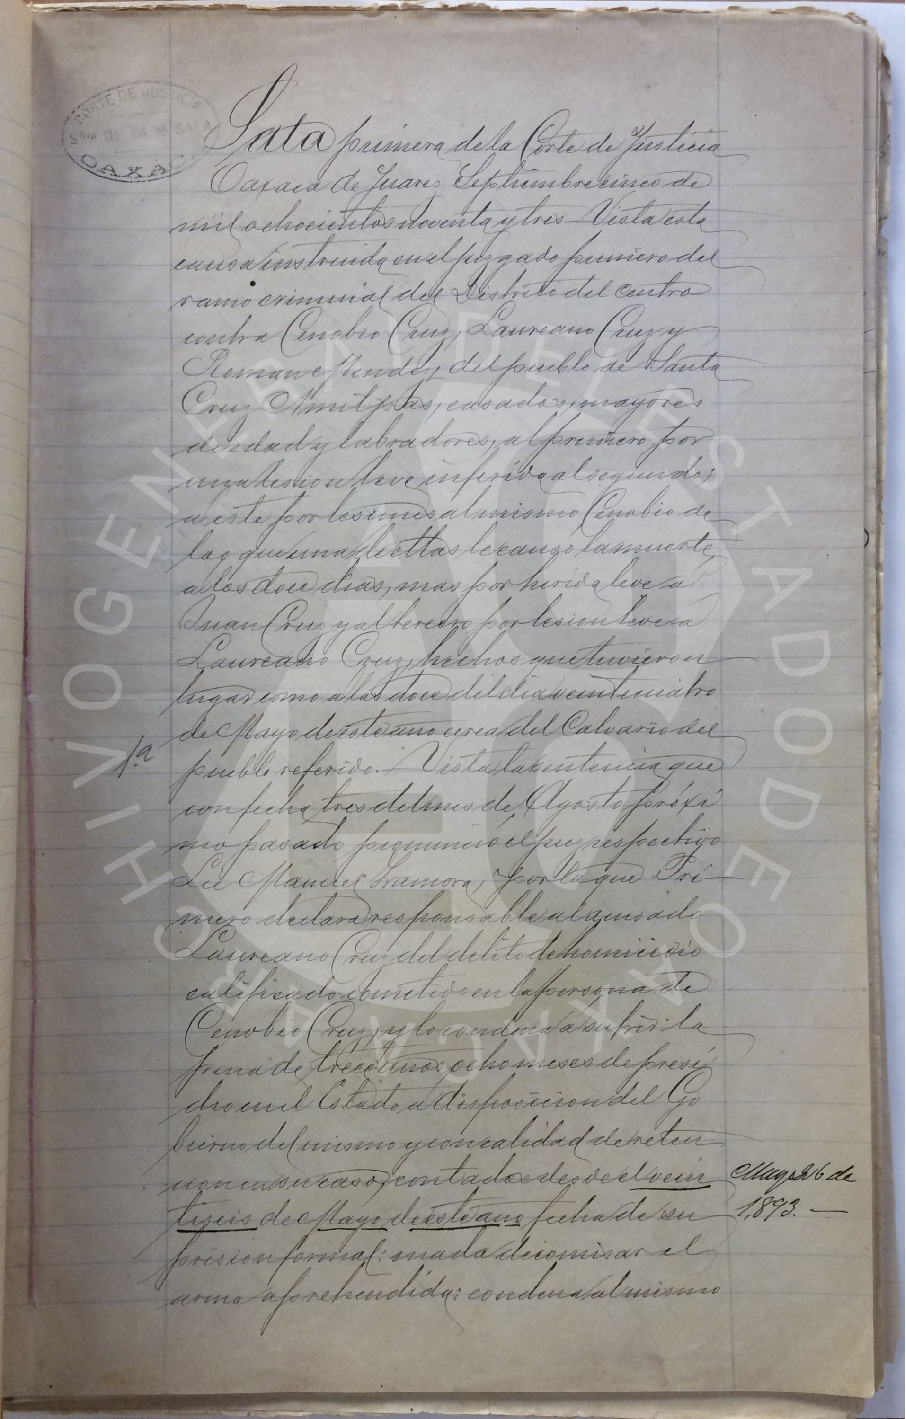 CORTE DE JUSTICIA
OAXACA
Sala primera de la Corte de Justicia
Oaxaca de Juarez Septiembre cinco de
mil ochocientos noventa y tres. Vista esta
causa instruida en el juzgado primero del
ramo criminal del Distrito del centro
contra Cenobio Cruz, Laureano Cruz y
Roman Mendez, del pueblo de Santa
Cruz Amilpas, casados, mayores
de edad y labradores, al primero por
una lesion leve inferida al segundo;
a este por lesiones al mismo Cenobio de
las que una de ellas le causó la muerte
a los doce dias, mas por herida leve á
Juan Cruz y al tercero por lesion leve á
Laureano Cruz, hechos que tuvieron
lugar como a las doce del dia veinticuatro
de Mayo de este año cerca del Calvario del
pueblo referido. Vista la sentencia que
1ª
con fecha tres del mes de Agosto próxi
mo pasado pronunció el juez respectivo
Lic Manuel Zamora, por la que Pri-
mero declara responsable al acusado
Laureano Cruz del delito de homicidio
calificado cometido en la persona de
Cenobio Cruz, y lo condena a sufrir la
pena de trece años ocho meses de presi
dio en el Estado a disposicion del Go
bierno del mismo y con calidad de reten
cion en su caso, contados desde el vein
Mayo 26 de
tiseis de Mayo de este año fecha de su
1,893.—
prision formal: manda decomisar el
arma aprehendida: condena al mismo
ARCHIVO GENERAL DEL ESTADO DE OAXACA